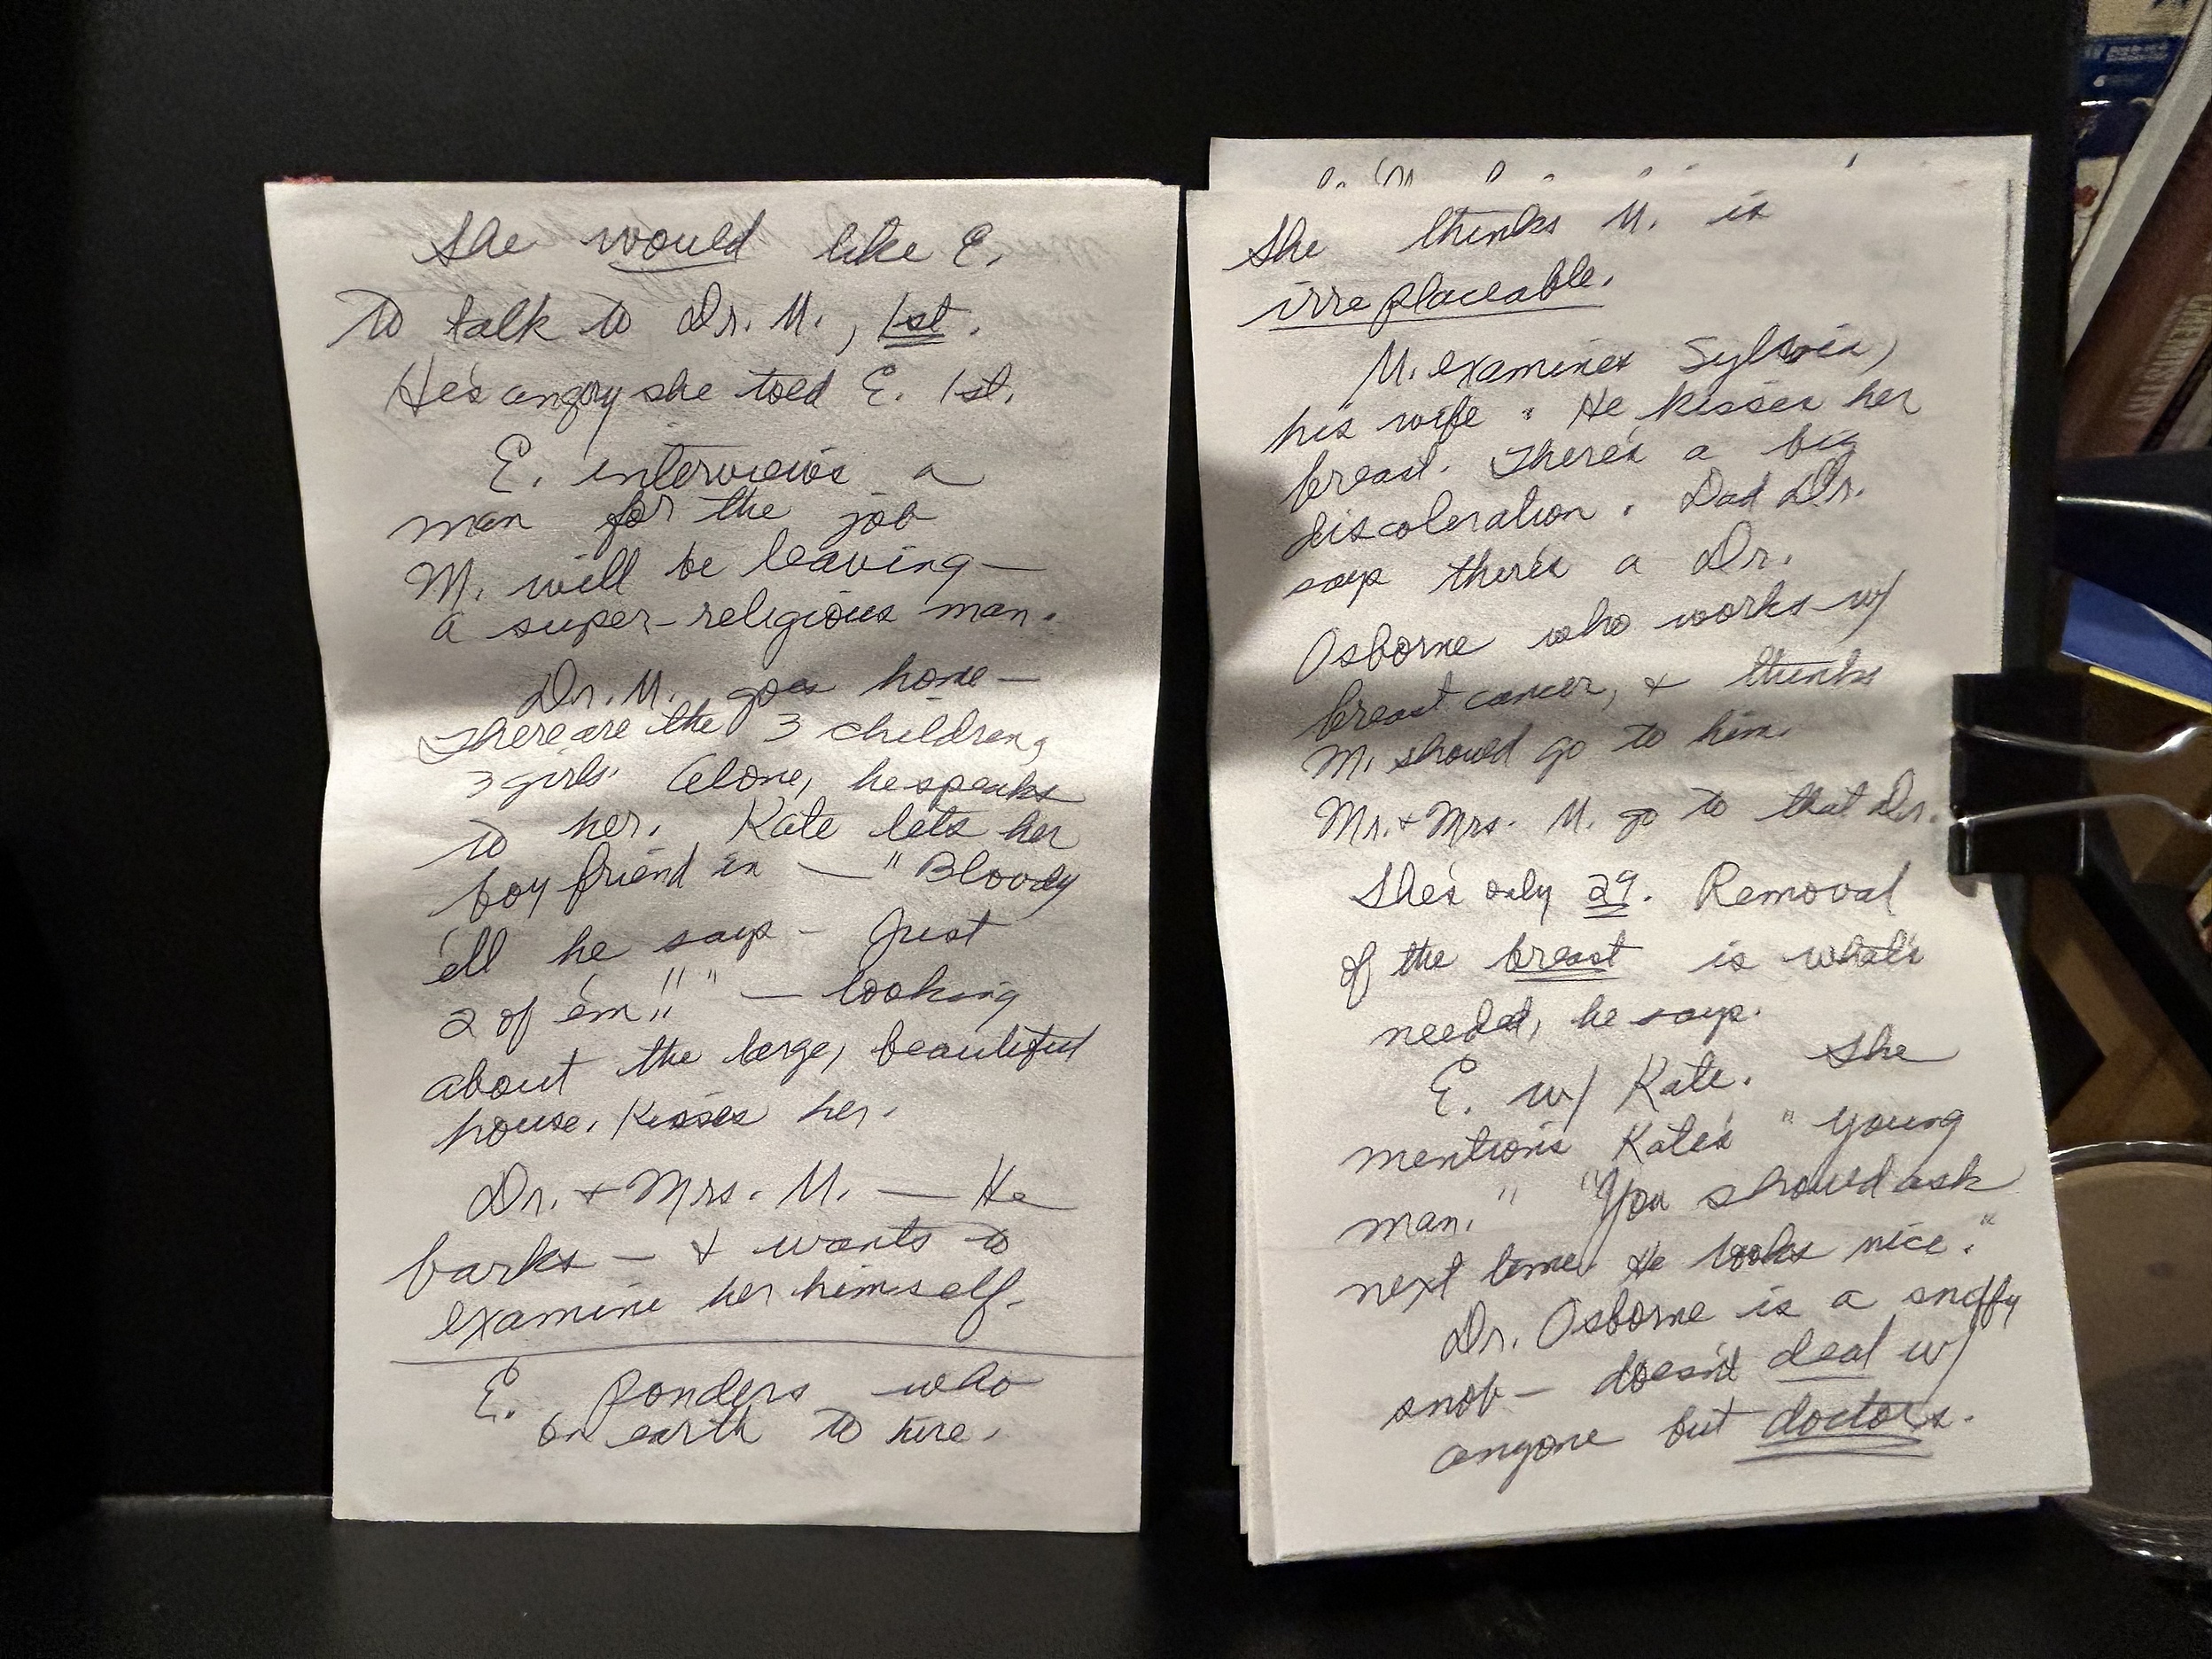 She would like E.
to talk to Dr. M., 1st.
He's angry she told E. 1st.
E. interviews a
man for the job
M. will be leaving—
a super-religious man.
Dr. M. goes home—
There are the 3 children,
3 girls. Alone, he speaks
to her. Kate lets her
boy friend in — "Bloody
'ell he says - Just
2 of 'em!!" — looking
about the large, beautiful
house. Kisses her.
Dr. + Mrs. M. — He
barks — & wants to
examine her himself.
E. ponders who
on earth to hire.
She thinks M. is
irreplaceable.
M. examines Sylvia,
his wife. He kisses her
breast. There's a big
discoloration. Dad Dr.
says there's a Dr.
Osborne who works w/
breast cancer, & thinks
M. should go to him.
Mr. + Mrs. M. go to that Dr.
She's only 29. Removal
of the breast is what's
needed, he says.
E. w/ Kate. She
mentions Kate's "young
man." "You should ask
next time. He looks nice."
Dr. Osborne is a snuffy
snob — doesn't deal w/
anyone but doctors.